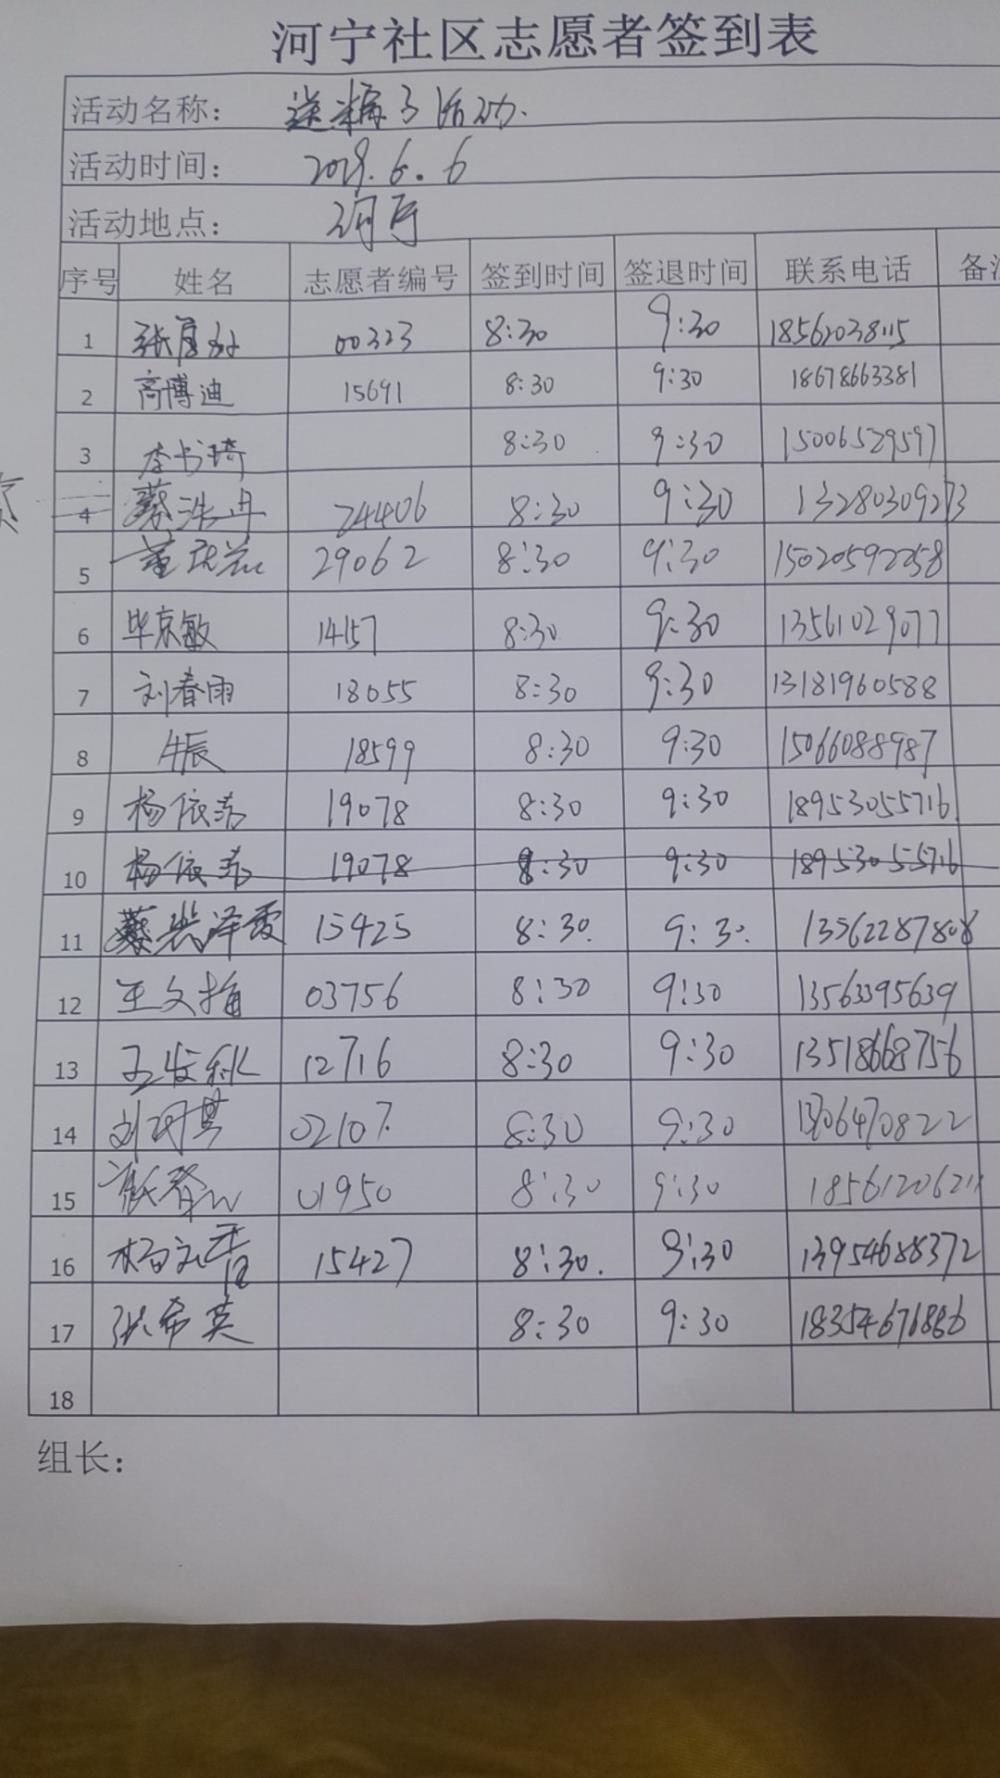 河宁社区志愿者签到表
活动名称： 送粽子活动.
活动时间： 2019.6.6
活动地点：
序号 姓名 志愿者编号 签到时间 签退时间 联系电话 备
1 00323 8:30 9:30 18562038115
2 高博迪 15691 8:30 9:30 18678663381
3 李书琦 8:30 9:30 15006529597
4 蔡浩丹 24406 8:30 9:30 13280309273
5 董 29062 8:30 9:30 15020592258
6 毕京敏 14157 8:30 9:30 13561029077
7 刘春雨 18055 8:30 9:30 13181960588
8 牛辰 18599 8:30 9:30 15066088987
9 杨依 19078 8:30 9:30 18953055716
10 杨依 19078 8:30 9:30 18953055716
11 泽霞 15425 8:30. 9:30. 13562287808
12 王文 03756 8:30 9:30 13563395639
13 12716 8:30 9:30 13518668756
14 刘 02107 8:30 9:30 13706470822
15 01950 8:30 9:30
16 杨 15427 8:30. 9:30 13954688372
17 张希英 8:30 9:30 18354676886
18
组长：